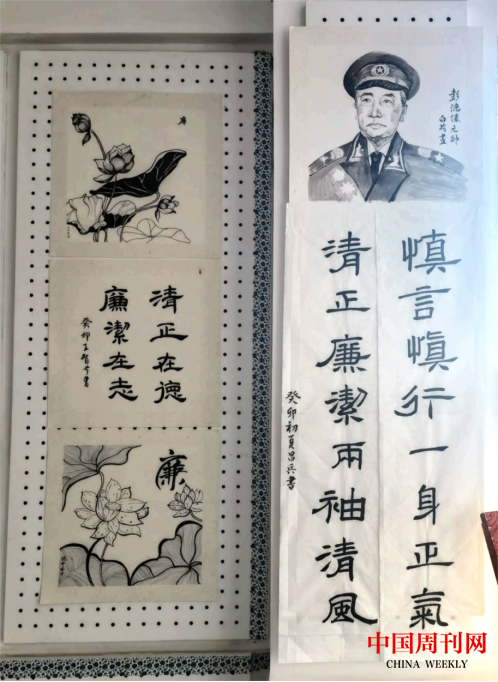 廉
清正在德
廉潔在志
癸卯
書
廉
彭德懷元帥
白芳畫
慎言慎行一身正氣
清正廉潔兩袖清風
癸卯初夏昌兵書
中国周刊网
CHINA WEEKLY